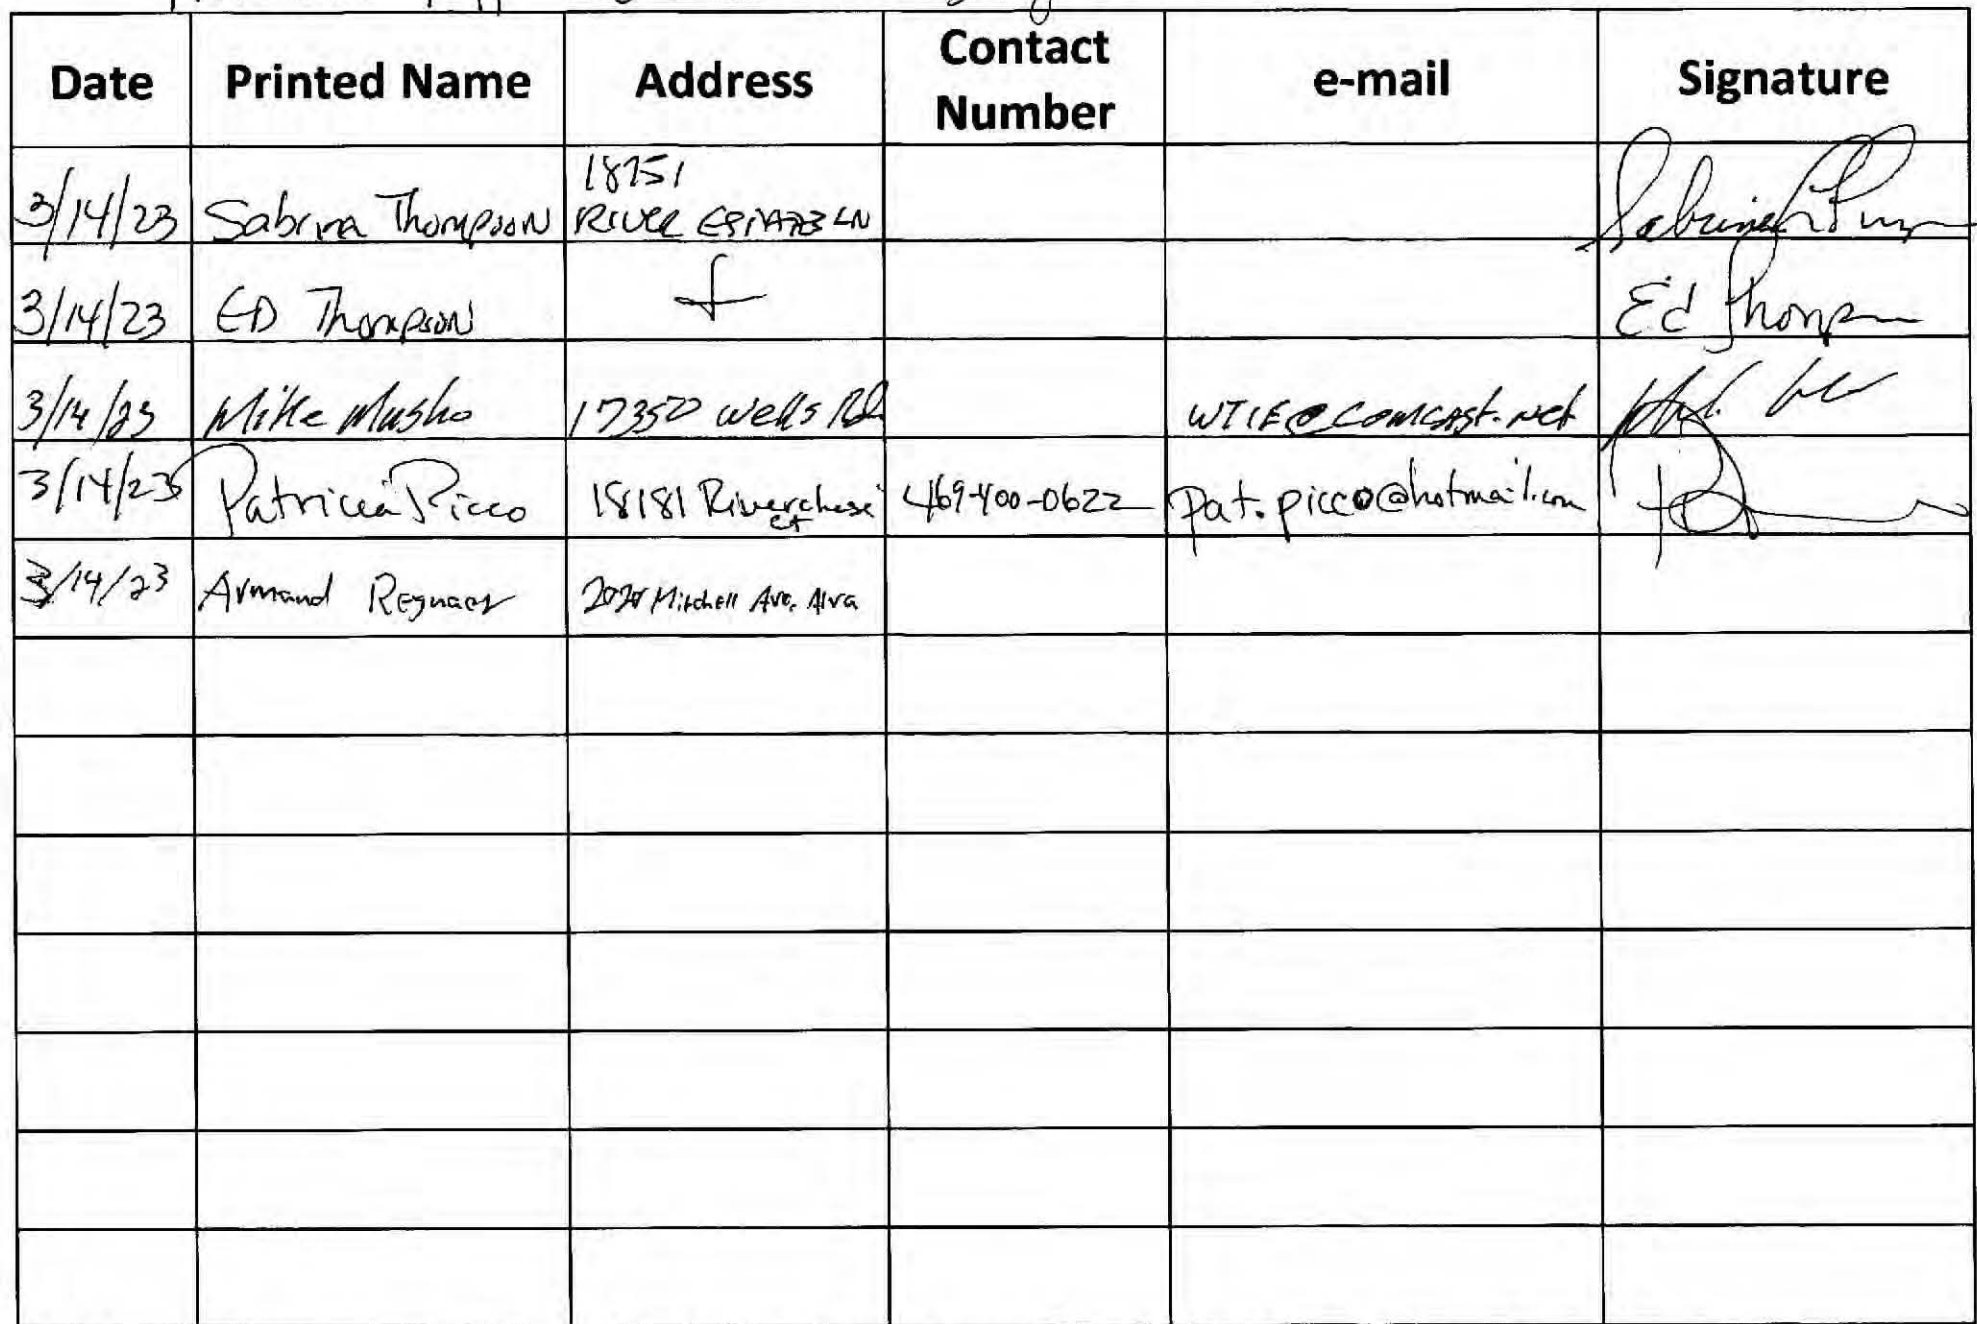 Date Printed Name Address Contact Number e-mail Signature
18751
3/14/23 Sabrina Thompson RIVER ESTATES LN
3/14/23 ED Thompson Ed Thompson
3/14/23 Mike Musho 17350 Wells Rd WTIE@COMCAST.net
3/14/23 Patricia Picco 18181 Riverchase ct 469-400-0622 pat.picco@hotmail.com
3/14/23 Armand Mitchell Ave, Alva